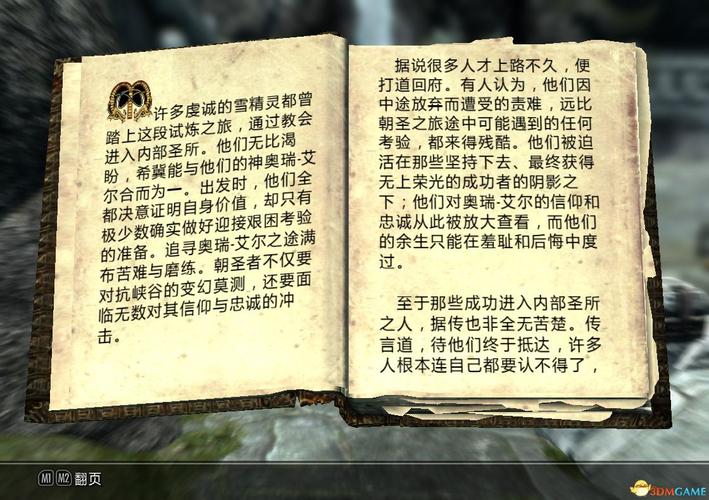 许多虔诚的雪精灵都曾
踏上这段试炼之旅，通过教会
进入内部圣所。他们无比渴
盼，希冀能与他们的神奥瑞-艾
尔合而为一。出发时，他们全
都决意证明自身价值，却只有
极少数确实做好迎接艰困考验
的准备。追寻奥瑞-艾尔之途满
布苦难与磨练。朝圣者不仅要
对抗峡谷的变幻莫测，还要面
临无数对其信仰与忠诚的冲
击。
据说很多人才上路不久，便
打道回府。有人认为，他们因
中途放弃而遭受的责难，远比
朝圣之旅途中可能遇到的任何
考验，都来得残酷。他们被迫
活在那些坚持下去、最终获得
无上荣光的成功者的阴影之
下；他们对奥瑞-艾尔的信仰和
忠诚从此被放大查看，而他们
的余生只能在羞耻和后悔中度
过。
至于那些成功进入内部圣所
之人，据传也非全无苦楚。传
言道，待他们终于抵达，许多
人根本连自己都要认不得了，
M1 M2 翻页
3DMGAME